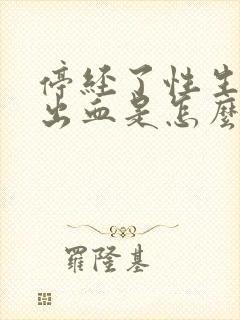 停經了性生
出血是怎麼
羅隆基